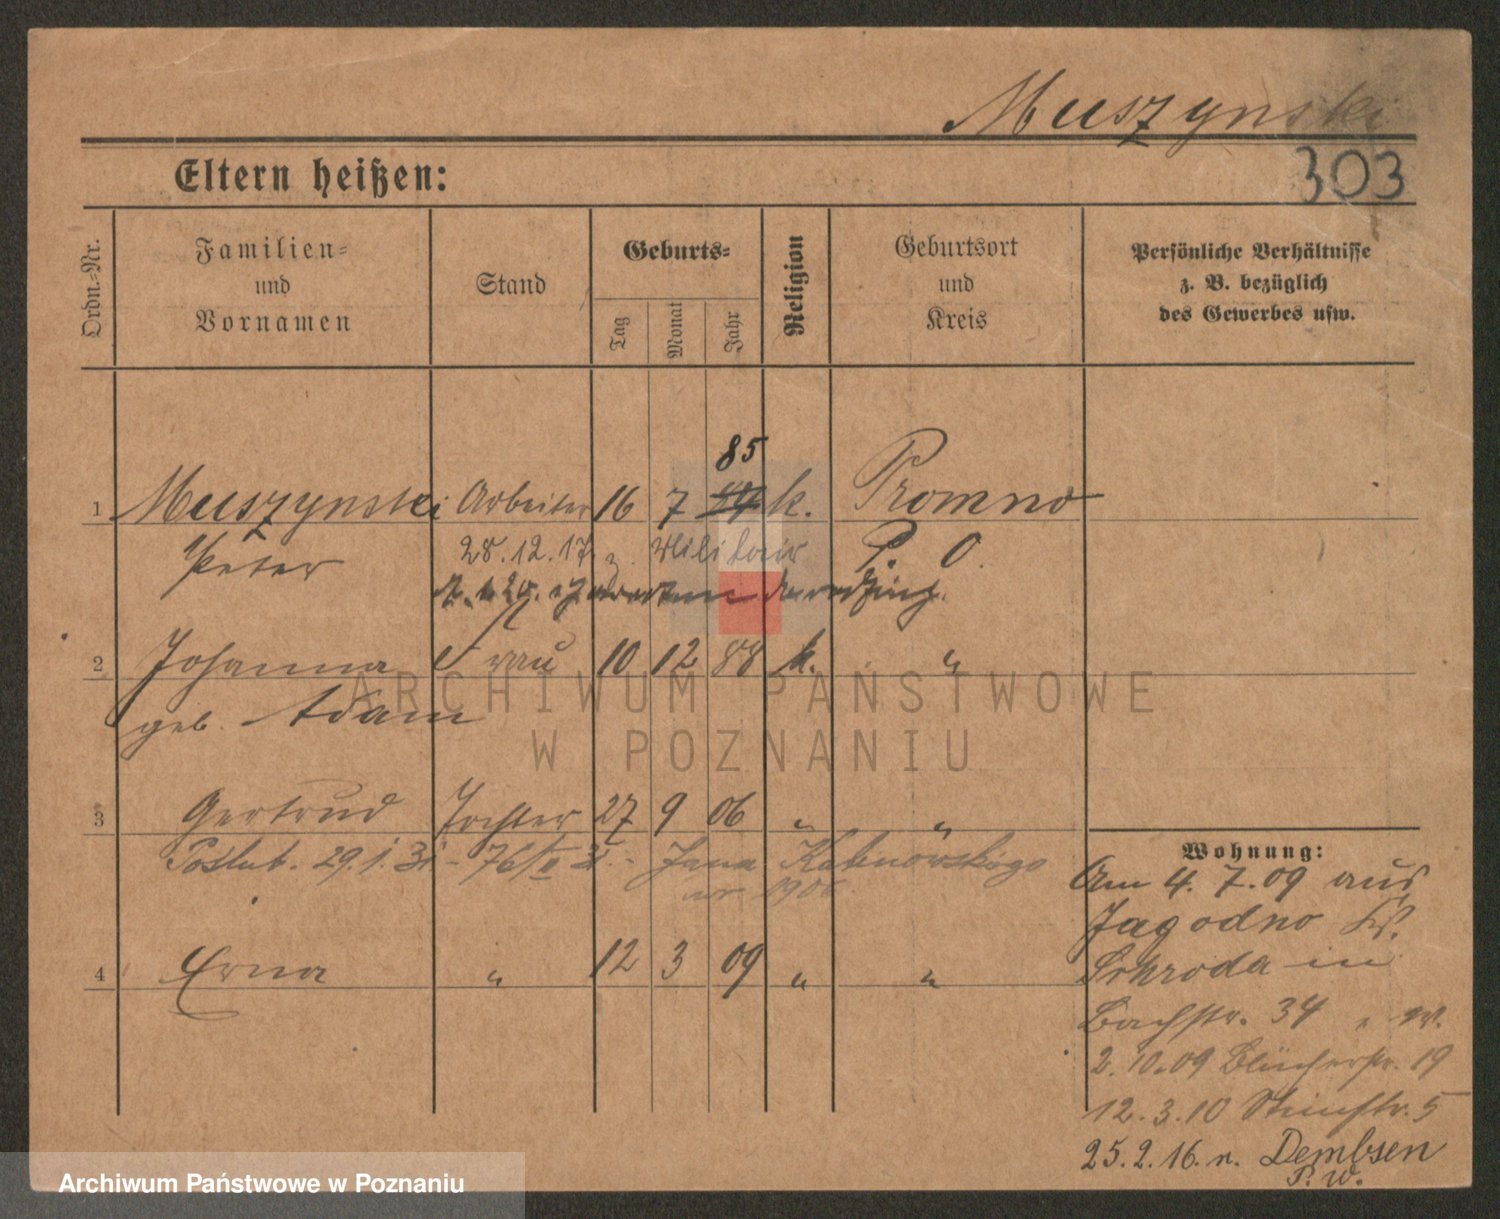 Muszynski
Eltern heißen:
303
Ordn.-Nr.
Familien-
und
Vornamen
Stand
Geburts-
Tag
Monat
Jahr
Religion
Geburtsort
und
Kreis
Persönliche Verhältnisse
z. B. bezüglich
des Gewerbes usw.
85
1 Muszynski Arbeiter 16 7 k. Promno
Peter 28.12.17 z. Militair P. O.
2 Johanna Frau 10 12 88 k. "
geb. Adam
3 Gertrud Tochter 27 9 06 " "
Poslub. 29.1.31 - 76/II 31 - Jana Kabnowskiego
ur 1906
4 Erna " 12 3 09 " "
Wohnung:
Am 4. 7. 09 aus
Jagodno Kr.
Schroda in
Bachstr. 34 w.
2.10.09 Blücherstr. 19
12.3.10 Steinstr. 5
25.2.16. n. Dembsen
P. W.
ARCHIWUM PAŃSTWOWE
W POZNANIU
Archiwum Państwowe w Poznaniu